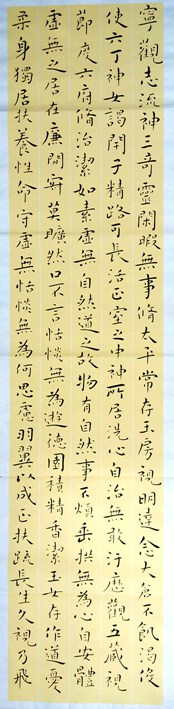 寧觀志流神三奇靈閑暇無事脩太平常存玉房視明達念大倉不飢渴役
使六丁神女謁閉子精路可長活正室之中神所居洗心自治無敢汙歷觀五藏視
節度六府脩治潔如素虛無自然道之故物有自然事不煩垂拱無為心自安體
虛無之居在廉間寂莫曠然口不言恬惔無為遊德園積精香潔玉女存作道憂
柔身獨居扶養性命守虛無恬惔無為何思慮羽翼以成正扶疏長生久視乃飛